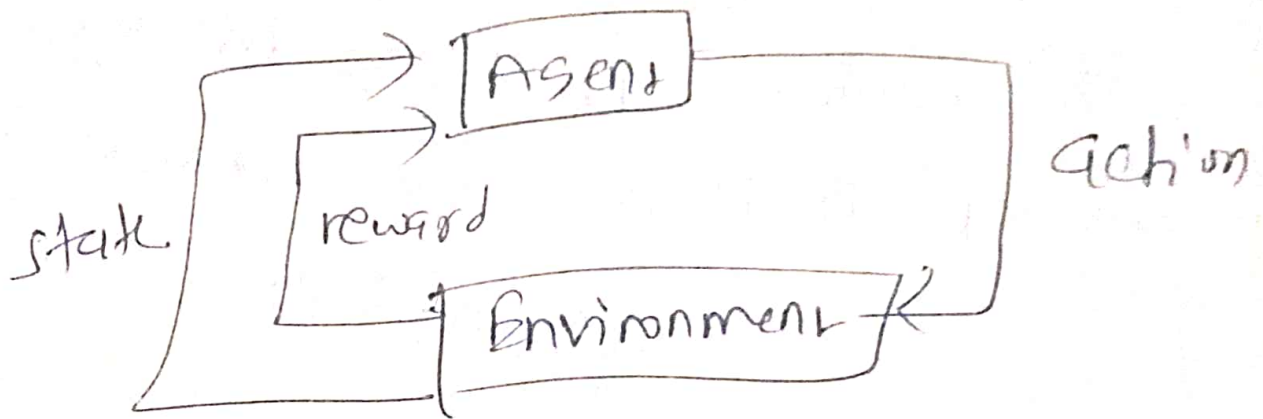 Agent
action
state
reward
Environment